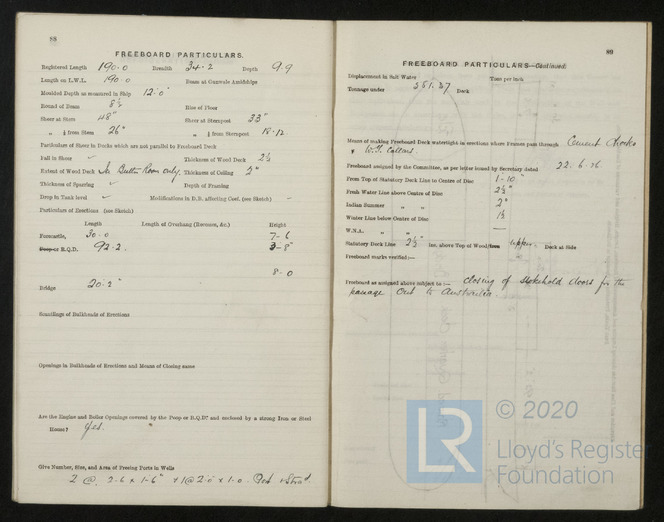 88
FREEBOARD PARTICULARS.
Registered Length 190.0 Breadth 34.2 Depth 9.9
Length on L.W.L. 190.0 Beam at Gunwale Amidships
Moulded Depth as measured in Ship 12.0"
Round of Beam 8½ Rise of Floor
Sheer at Stem 48" Sheer at Sternpost 33"
" ⅛ from Stem 26" " ⅛ from Sternpost 18.12
Particulars of Sheer in Decks which are not parallel to Freeboard Deck
Fall in Sheer Thickness of Wood Deck 2½
Extent of Wood Deck In Butter Room only Thickness of Ceiling
Thickness of Sparring Depth of Framing
Drop in Tank level Modifications in D.B. affecting Coef. (see Sketch) —
Particulars of Erections (see Sketch)
Length Length of Overhang (Recesses, &c.) Height
Forecastle, 30.0 7-6
Poop or R.Q.D. 92.2 3-8"
8.0
Bridge 20.2"
Scantlings of Bulkheads of Erections
Openings in Bulkheads of Erections and Means of Closing same
Are the Engine and Boiler Openings covered by the Poop or R.Q.D? and enclosed by a strong Iron or Steel
House? Yes.
Give Number, Size, and Area of Freeing Ports in Wells
2 @ 2-6 x 1-6" + 1 @ 2.0 x 1.0 Port + Starbd.
89
FREEBOARD PARTICULARS—Continued.
Displacement in Salt Water Tons per inch
Tonnage under 551.37 Deck
Means of making Freeboard Deck watertight in erections where Frames pass through Cement Chocks
+ W.T. Collars.
Freeboard assigned by the Committee, as per letter issued by Secretary dated 22.6.26
From Top of Statutory Deck Line to Centre of Disc 1-10"
Fresh Water Line above Centre of Disc 2½"
Indian Summer " " 2"
Winter Line below Centre of Disc
W.N.A. " " —
Statutory Deck Line 2½" ins. above Top of Wood/Iron upper Deck at Side
Freeboard marks verified:—
Freeboard as assigned above subject to:— Closing of stokehold doors for the
passage Out to Australia.
LR
© 2020
Lloyd's Register
Foundation